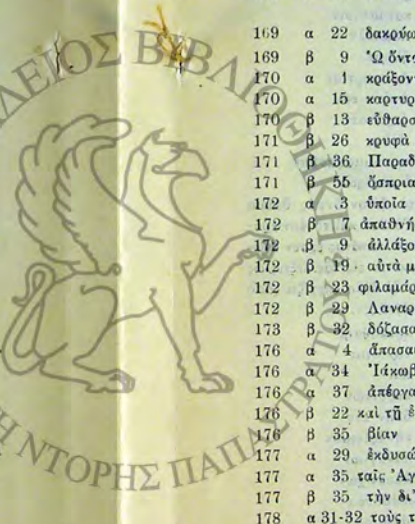 169 α 22 δακρύω
169 β 9 Ὦ ὄντ
170 α 1 κράξον
170 α 15 καρτυρ
170 β 13 εὔθαρσ
171 β 26 κρυφὰ
171 β 36 Παραδ
171 β 55 ὄσπρια
172 α 3 ὑποῖα
172 β 7 ἀπαθνή
172 β 9 ἀλλάξο
172 β 19 αὐτὰ μ
172 β 23 φιλαμάρ
172 β 29 Λαναρ
173 β 32 δόξασα
176 α 4 ἅπασα
176 α 34 Ἰάκωβ
176 α 37 ἀπέργα
176 β 22 καὶ τῇ ἐ
176 β 35 βίαν
177 α 29 ἐκδυσώ
177 α 35 ταῖς Ἀγ
177 β 35 τὴν δι
178 α 31-32 τοὺς τ